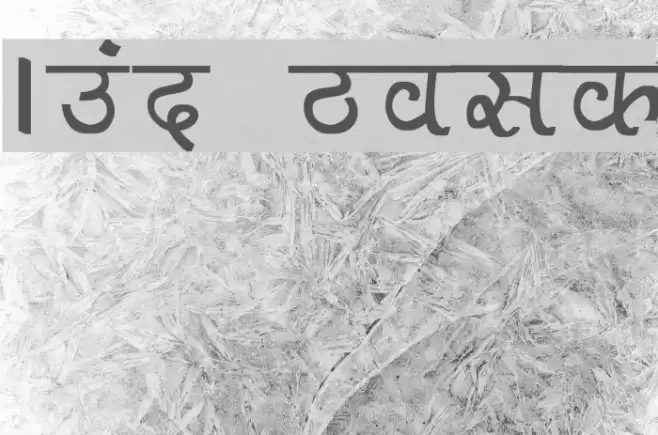 ।उंद ठवसक